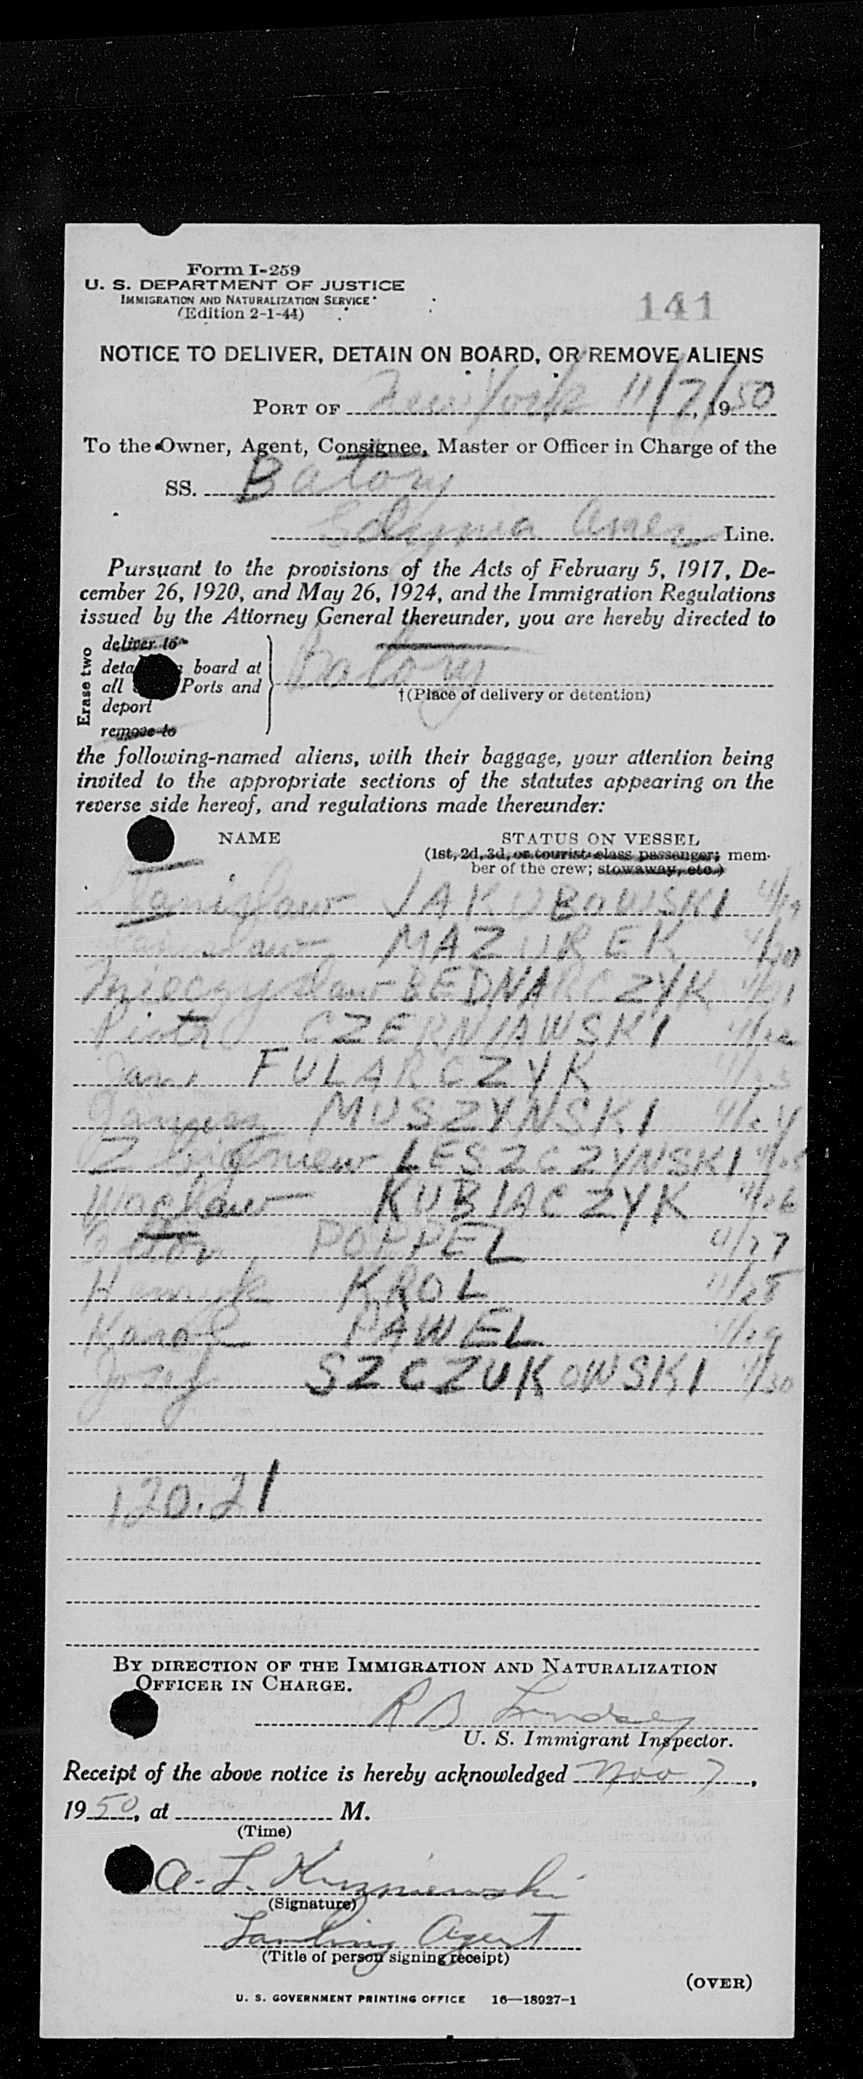 Form I-259
U. S. DEPARTMENT OF JUSTICE
IMMIGRATION AND NATURALIZATION SERVICE
(Edition 2-1-44)
141
NOTICE TO DELIVER, DETAIN ON BOARD, OR REMOVE ALIENS
PORT OF New York 11/7/, 1950
To the Owner, Agent, Consignee, Master or Officer in Charge of the
SS. Batory
Gdynia Amer Line.
Pursuant to the provisions of the Acts of February 5, 1917, De-
cember 26, 1920, and May 26, 1924, and the Immigration Regulations
issued by the Attorney General thereunder, you are hereby directed to
Erase two
deliver to
deta board at
all Ports and
deport
remove to
Batory
†(Place of delivery or detention)
the following-named aliens, with their baggage, your attention being
invited to the appropriate sections of the statutes appearing on the
reverse side hereof, and regulations made thereunder:
NAME STATUS ON VESSEL
(1st, 2d, 3d, or tourist class passenger; mem-
ber of the crew; stowaway, etc.)
Stanislaw JAKUBOWSKI 4/19
MAZUREK 4/20
Mieczyslaw BEDNARCZYK 4/21
Piotr CZERNIAWSKI
Jan FULARCZYK
MUSZYNSKI
Zbigniew LESZCZYNSKI
Waclaw KUBIACZYK
POPPEL 4/27
Henryk KROL
Karol PAWEL
Jozef SZCZUKOWSKI
120.21
BY DIRECTION OF THE IMMIGRATION AND NATURALIZATION
OFFICER IN CHARGE.
R B Lindsey
U. S. Immigrant Inspector.
Receipt of the above notice is hereby acknowledged Nov 7,
1950, at M.
(Time)
A. L. Kuzniewski
(Signature)
Landing Agent
(Title of person signing receipt)
(OVER)
U. S. GOVERNMENT PRINTING OFFICE 16—18927-1